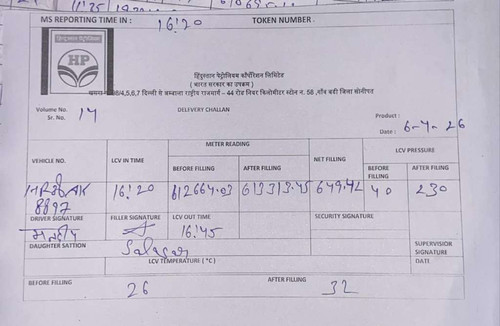 MS REPORTING TIME IN : 16:20 TOKEN NUMBER
हिन्दुस्तान पेट्रोलियम
HP
हिंदुस्तान पेट्रोलियम कॉर्पोरेशन लिमिटेड
( भारत सरकार का उपक्रम )
4,5,6,7 दिल्ली से अम्बाला राष्ट्रीय राजमार्ग – 44 रोड नियर किलोमीटर स्टोन न. 58 ,गाँव बड़ी जिला सोनीपत
Volume No. DELEVERY CHALLAN
Sr. No. 14
Product :
Date : 6-4-26
METER READING LCV PRESSURE
VEHICLE NO. LCV IN TIME BEFORE FILLING AFTER FILLING NET FILLING BEFORE FILLING AFTER FILLING
16:20 612664.03 613313.45 649.42 40 230
8897
DRIVER SIGNATURE FILLER SIGNATURE LCV OUT TIME SECURITY SIGNATURE
16:45
DAUGHTER SATTION SUPERVISIOR SIGNATURE
LCV TEMPERATURE ( °C ) DATE
BEFORE FILLING 26 AFTER FILLING 32